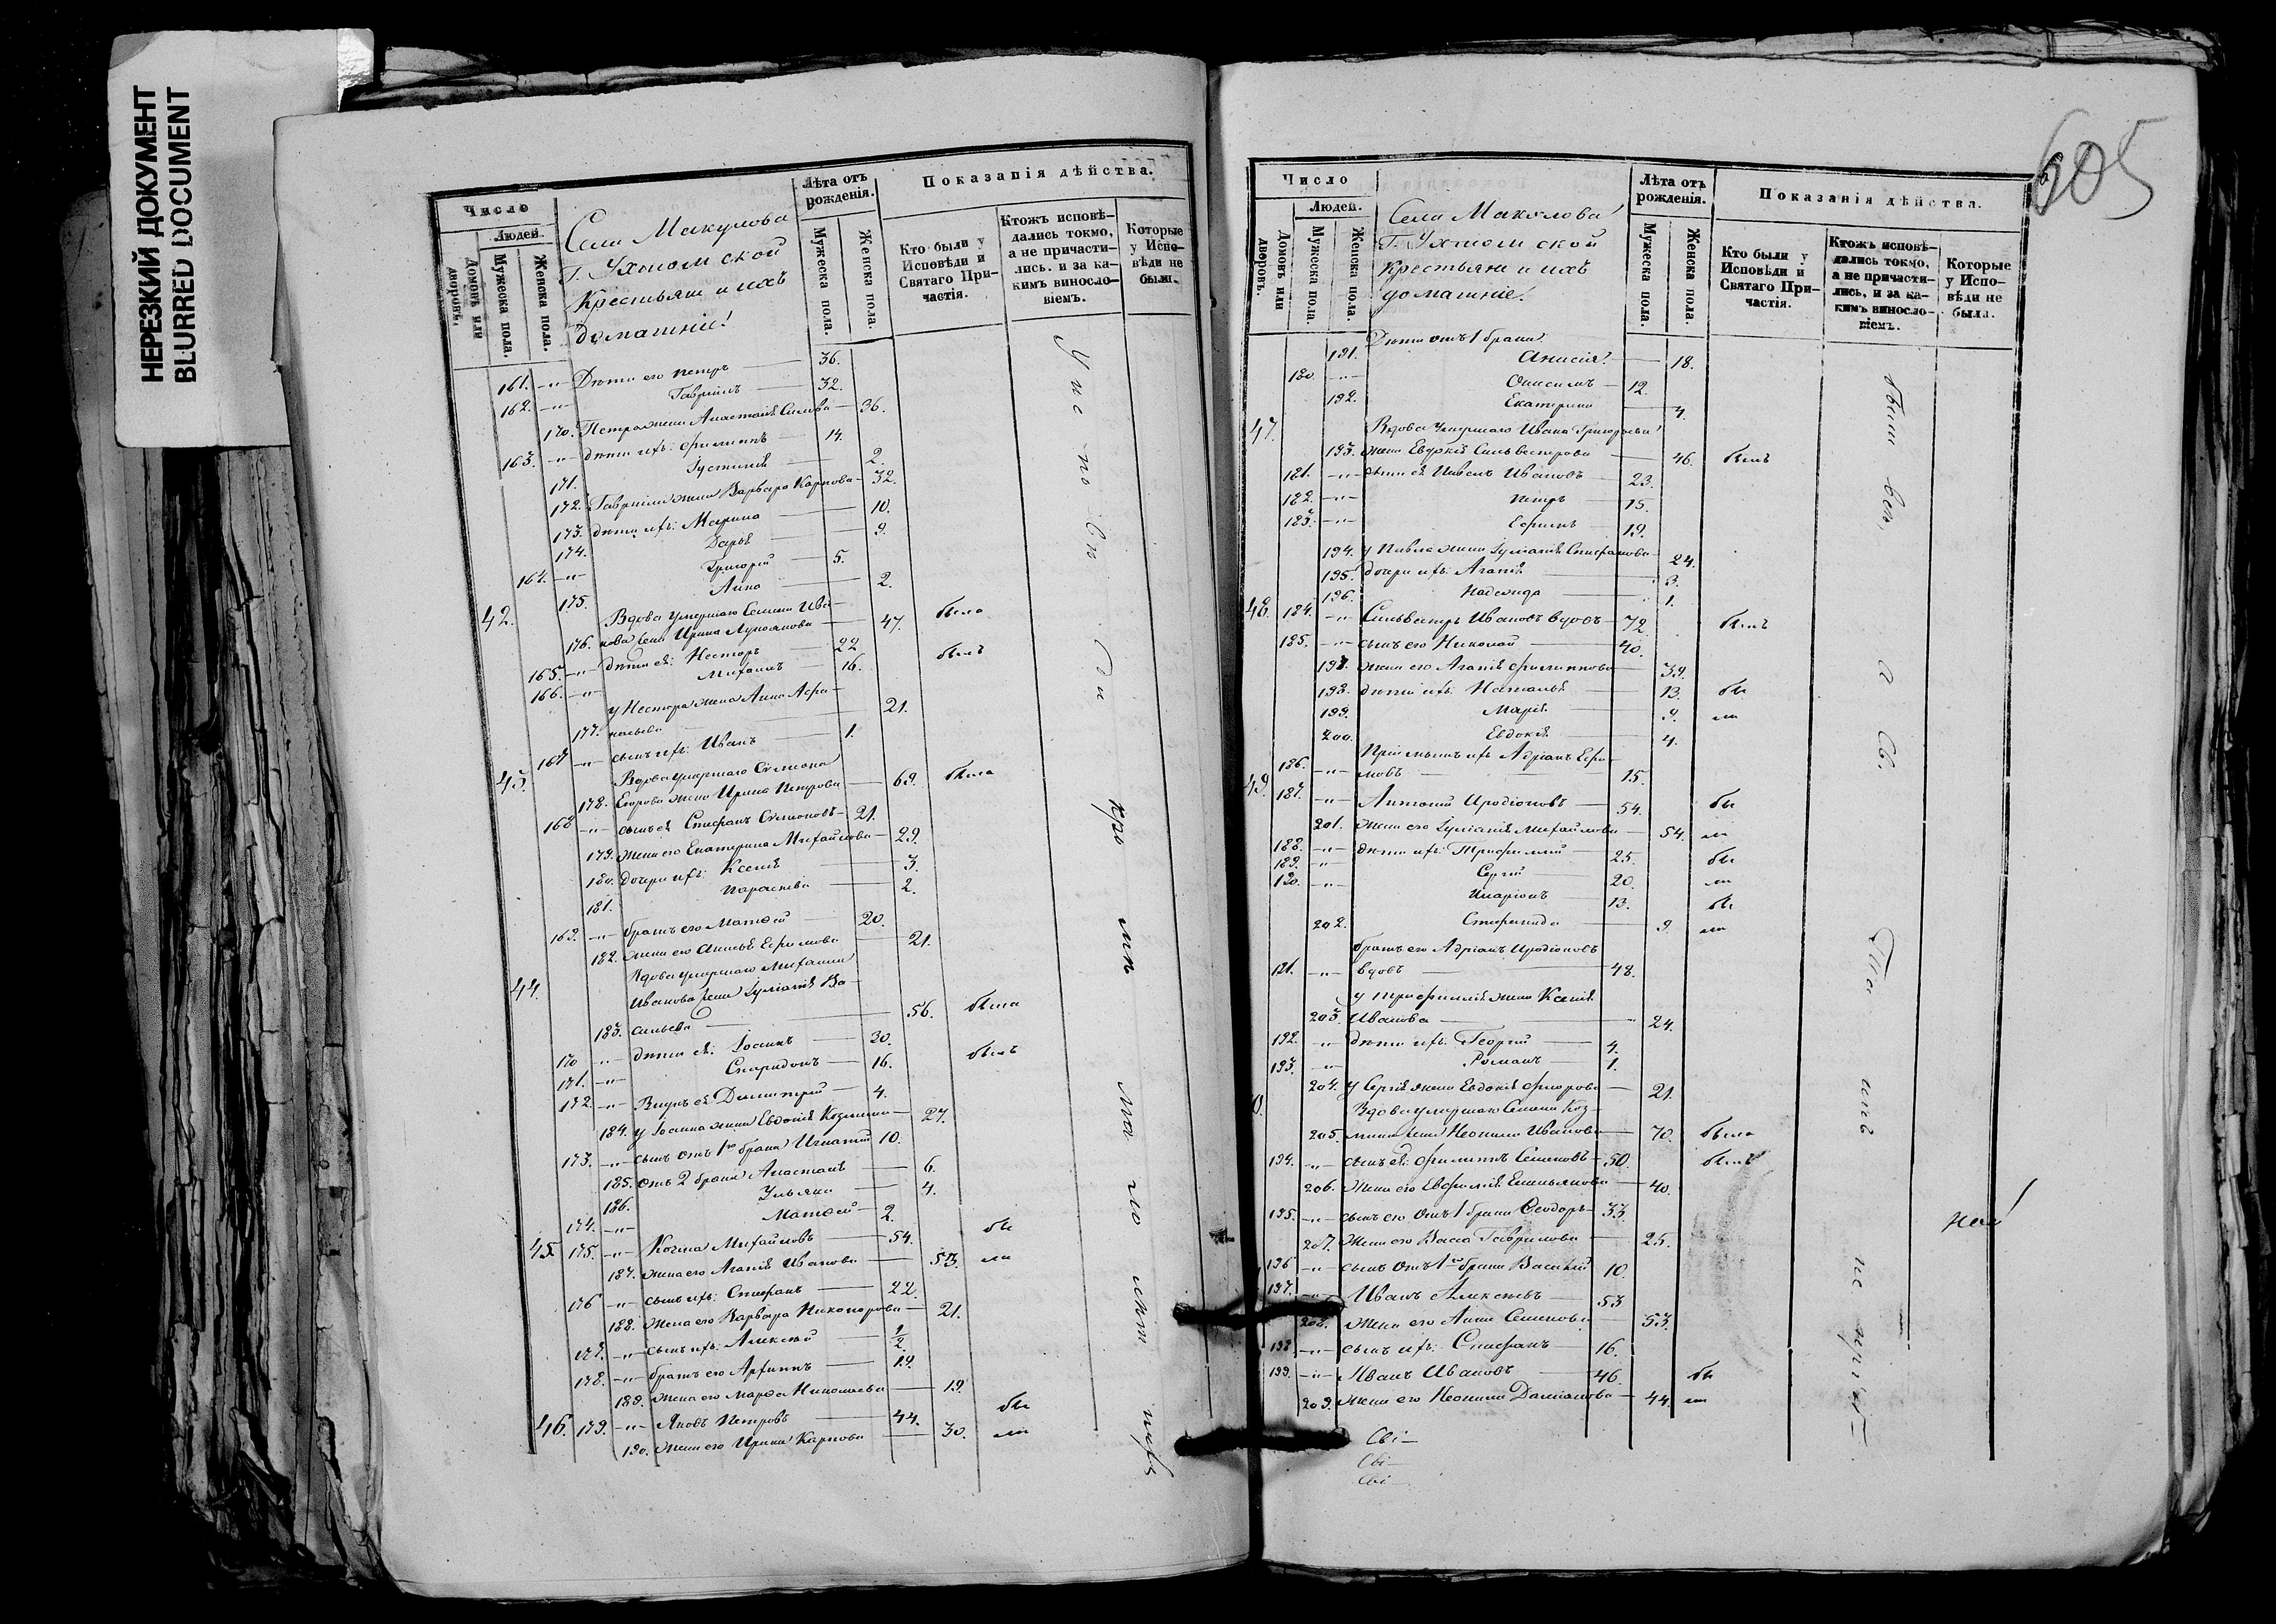 НЕРЕЗКИЙ ДОКУМЕНТ
BLURRED DOCUMENT
Число
Людей.
Домовъ или дворовъ.
Мужеска пола.
Женска пола.
Села Макулова
Г. Ухтомской
Крестьяне и ихъ
домашніе!
Лѣта отъ рожденія.
Мужеска пола.
Женска пола.
Показанія дѣйства.
Кто были у Исповѣди и Святаго Причастія.
Ктожъ исповѣдались токмо, а не причастились. и за какимъ винословіемъ.
Которые у Исповѣди не были.
161. -"- Дѣти его Петръ 36.
162. -"- Гавріилъ 32.
170. Петра жена Анастасія 36.
163. -"- дѣти ихъ: Филиппъ 14.
171. Іустинія 2.
172. Гавріила жена Варвара Карпова 32.
173. дѣти ихъ: Марина 10.
174. Дарья 9.
164. -"- Григорій 5.
175. Анна 2.
42. Вдова умершаго Семена Ива-
176. нова жена Ирина Лукоянова 47. была
165. -"- дѣти ея: Несторъ 22 былъ
166. -"- Михаилъ 16.
у Нестора жена Анна Афа-
177. насьева 21.
167 -"- сынъ ихъ: Иванъ 1.
43. Вдова умершаго Симеона
178. Егорова жена Ирина Петрова 69. была
168 -"- сынъ ея Стефанъ Симеоновъ 21.
179. жена его Екатерина Михайлова 29.
180. дочери ихъ: Ксенія 3.
181. Параскева 2.
169. -"- братъ его Матѳей 20.
182. жена его Анисья Ефимова 21.
44. Вдова умершаго Михаила
Иванова жена Іуліанія Ва-
183. сильева 56. была
170 -"- дѣти ея: Іоаннъ 30.
171. -"- Спиридонъ 16. былъ
172. -"- Внукъ ея Димитрій 4.
184. у Іоанна жена Евдокія Козмина 27.
173. -"- сынъ отъ 1го брака Игнатій 10.
185. отъ 2 брака Анастасія 6.
186. Ульяна 4.
174. -"- Матѳей 2.
45. 175. -"- Козма Михайловъ 54. бы
187. жена его Агапія Иванова 53. ли
176 -"- сынъ ихъ: Стефанъ 22.
188. жена его Варвара Никонорова 21.
177. -"- сынъ ихъ: Алексѣй 1/2
178. -"- братъ его Архиппъ 19.
189. жена его Марѳа Николаева 19.
46. 179. -"- Яковъ Петровъ 44. бы
190. жена его Ирина Карпова 30. ли
605
Число
Людей.
Домовъ или дворовъ.
Мужеска пола.
Женска пола.
Села Макулова
Г. Ухтомской
крестьяне и ихъ
домашніе!
Лѣта отъ рожденія.
Мужеска пола.
Женска пола.
Показанія дѣйства.
Кто были у Исповѣди и Святаго Причастія.
Ктожъ исповѣдались токмо, а не причастились, и за какимъ винословіемъ.
Которые у Исповѣди не были.
Дѣти отъ 1 брака
191. Анисія 18.
180. -"- Онисимъ 12.
192. Екатерина 4.
47. Вдова умершаго Ивана Григорьева
193. жена Евдокія Сильвестрова 46. былъ
181. -"- дѣти ея Павелъ Ивановъ 23.
182. -"- Петръ 15.
183. -"- Ефимъ 19.
194. у Павла жена Іуліанія Стефанова 24.
195. дочери ихъ: Агапія 3.
196. Надежда 1.
48. 184. -"- Сильвестръ Ивановъ вдовъ 72 былъ
185. -"- сынъ его Николай 40.
197. жена его Агапія Филиппова 39.
198. дѣти ихъ: Наталья 13. бы
199. Марія 9. ли
200. Евдокія 4.
Пріемышъ ихъ Адріанъ Ефи-
186. -"- мовъ 15.
49. 187. -"- Антоній Иродіоновъ 54. бы
201. жена его Іуліанія Михайлова 54. ли
188. -"- дѣти ихъ: Трифиллій 25. бы
189. -"- Сергій 20. ли
190. -"- Иларіонъ 13. бы
202. Стефанида 9. ли
братъ его Адріанъ Иродіоновъ
191. -"- вдовъ 48.
у Трифиллія жена Ксенія
203. Иванова 24.
192. -"- дѣти ихъ: Георгій 4.
193. -"- Романъ 1.
204. у Сергія жена Евдокія Фиорова 21.
0. Вдова умершаго Семена Коз-
205. мина жена Неонила Иванова 70. была
194. -"- сынъ ея: Филиппъ Семеновъ 50. былъ
206. жена его Евфимія Емельянова 40.
195. -"- сынъ его отъ 1 брака Ѳеодоръ 33
207. жена его Васса Гаврилова 25.
196 -"- сынъ отъ 1го брака Василій 10.
197. -"- Иванъ Алексѣевъ 53
208. жена его Анна Семенова 53.
198 -"- сынъ ихъ: Стефанъ 16.
199. -"- Иванъ Ивановъ 46. бы
209. жена его Неонила Даміанова 44. ли
Сві
Сві
Сві